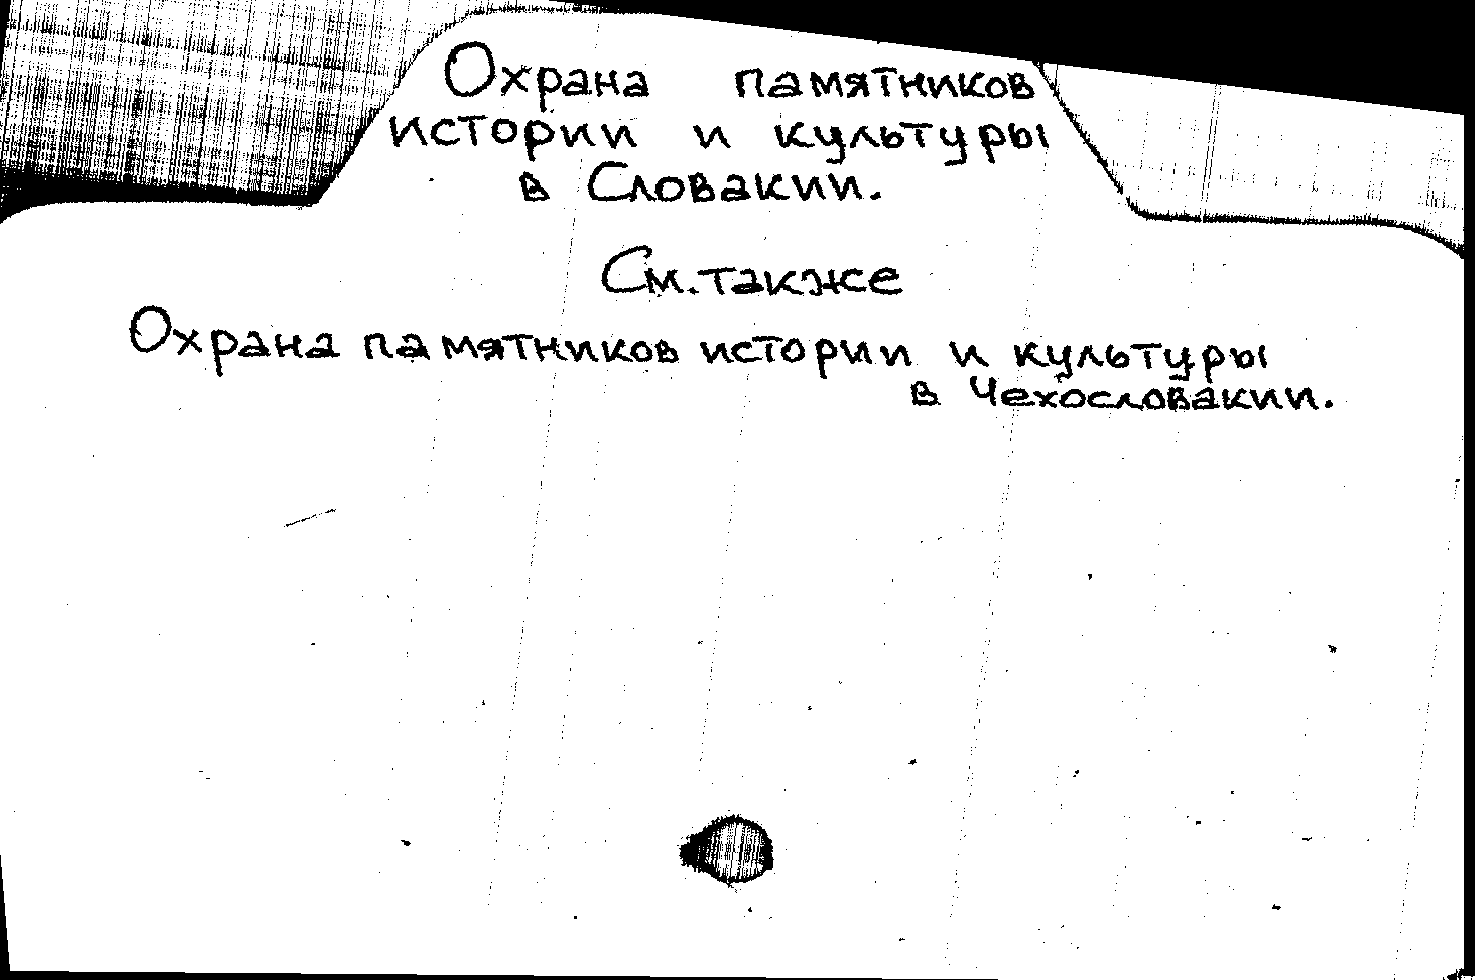 Охрана памятников
истории и культуры
в Словакии.
См. также
Охрана памятников истории и культуры
в Чехословакии.